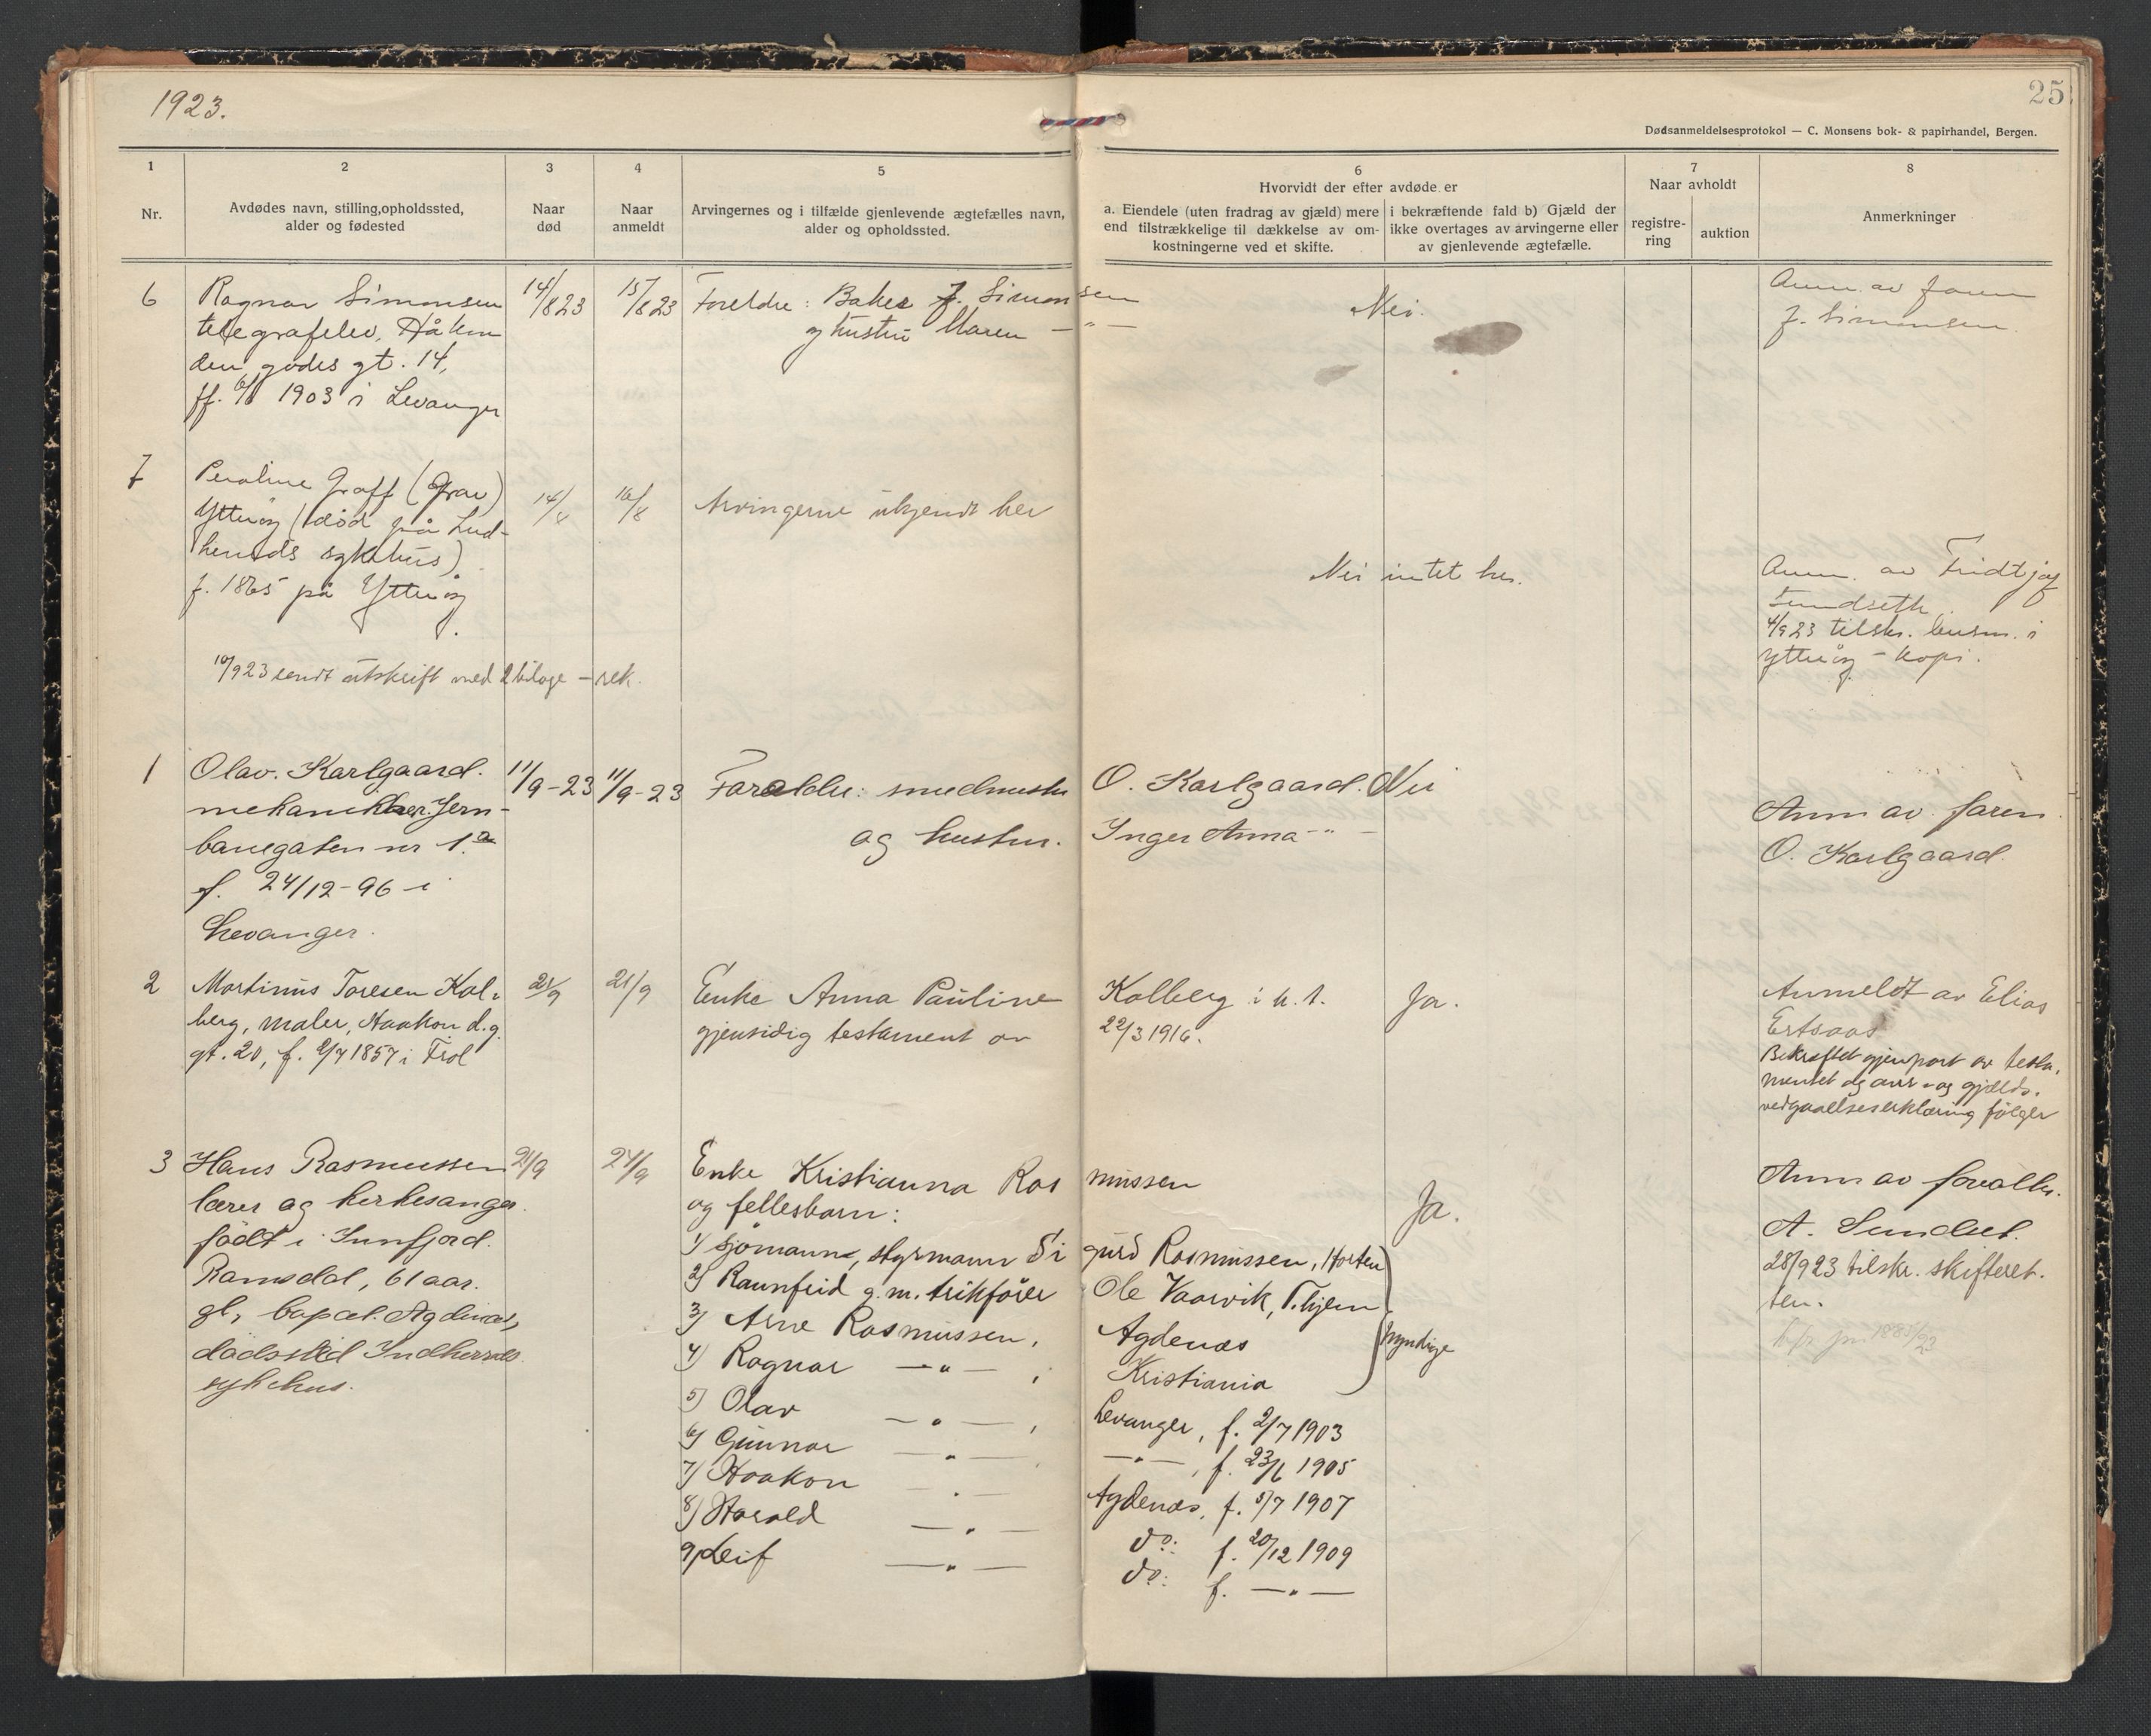 1923.
25
Dødsanmeldelsesprotokol — C. Monsens bok- & papirhandel, Bergen.
1
Nr.
2
Avdødes navn, stilling, opholdssted,
alder og fødested
3
Naar
død
4
Naar
anmeldt
5
Arvingernes og i tilfælde gjenlevende ægtefælles navn,
alder og opholdssted.
6
Hvorvidt der efter avdøde er
a. Eiendele (uten fradrag av gjæld) mere
end tilstrækkelige til dækkelse av om-
kostningerne ved et skifte.
i bekræftende fald b) Gjæld der
ikke overtages av arvingerne eller
av gjenlevende ægtefælle.
7
Naar avholdt
registre-
ring
auktion
8
Anmerkninger
6
Ragnar Simonsen
telegrafelev, Håkon
den godes gt. 14,
1903 i Levanger
14/8 23
15/8 23
Foreldre: Baker J. Simonsen
og hustru Maren — " —
Nei.
Anm. av faren
J. Simonsen.
7
Peroline Graff (Grav)
Ytterøy (død på Ind-
herreds sykehus)
f. 1865 på Ytterøy.
14/8
16/8
Arvingerne ukjendt her
Nei intet her.
Anm. av Fridtjof
4/9 23 tilskr. lensm. i
Ytterøy - kopi.
10/9 23 sendt utskrift med 2 bilage — rek.
1
Olav. Karlgaard.
mekaniker. Jern-
banegaten nr 1.a
f. 24/12-96 i
Levanger.
11/9-23
11/9-23
Foreldre: smedmester O. Karlgaard.
og hustru. Inger Anna - " -
Nei
Anm av faren
O. Karlgaard.
2
Martinus Toresen Kol-
berg, maler, Haakon d.g.
gt. 20, f. 1857 i Frol
21/9
21/9
Enke Anna Pauline Kolberg i h. t.
gjensidig testament av 22/3 1916.
Ja.
Anmeldt av Elias
Ertsaas
Bekræftet gjenpart av testa-
mentet og arv- og gjælds-
vedgaaelseserklæring følger
3
Hans Rasmussen
lærer og kirkesanger.
født i Sunfjord.
Ramsdal, 61 aar.
gl, bopæl. Agdenæs,
dødssted Indherreds
sykehus.
21/9
24/9
Enke Kristianna Rasmussen
og fellesbarn:
1) Sjømann, styrmann Sigurd Rasmussen, Horten
2) Raunfrid g.m. trikfører Ole Vaarvik, T.hjem
3) Arne Rasmussen, Agdenæs
4) Ragnar — " — , Kristiania
myndige
5) Olav — " — , Levanger, f. 2/7 1903
6) Gunnar — " — , — " —, f. 23/6 1905
7) Haakon — " — Agdenæs, f. 5/7 1907
8) Harald — " — do: f. 20/12 1909
9) Leif — " — do: f. — " —
Ja.
Anm av forvalter.
A. Sundset.
28/9 23 tilskr. skifteret-
ten.